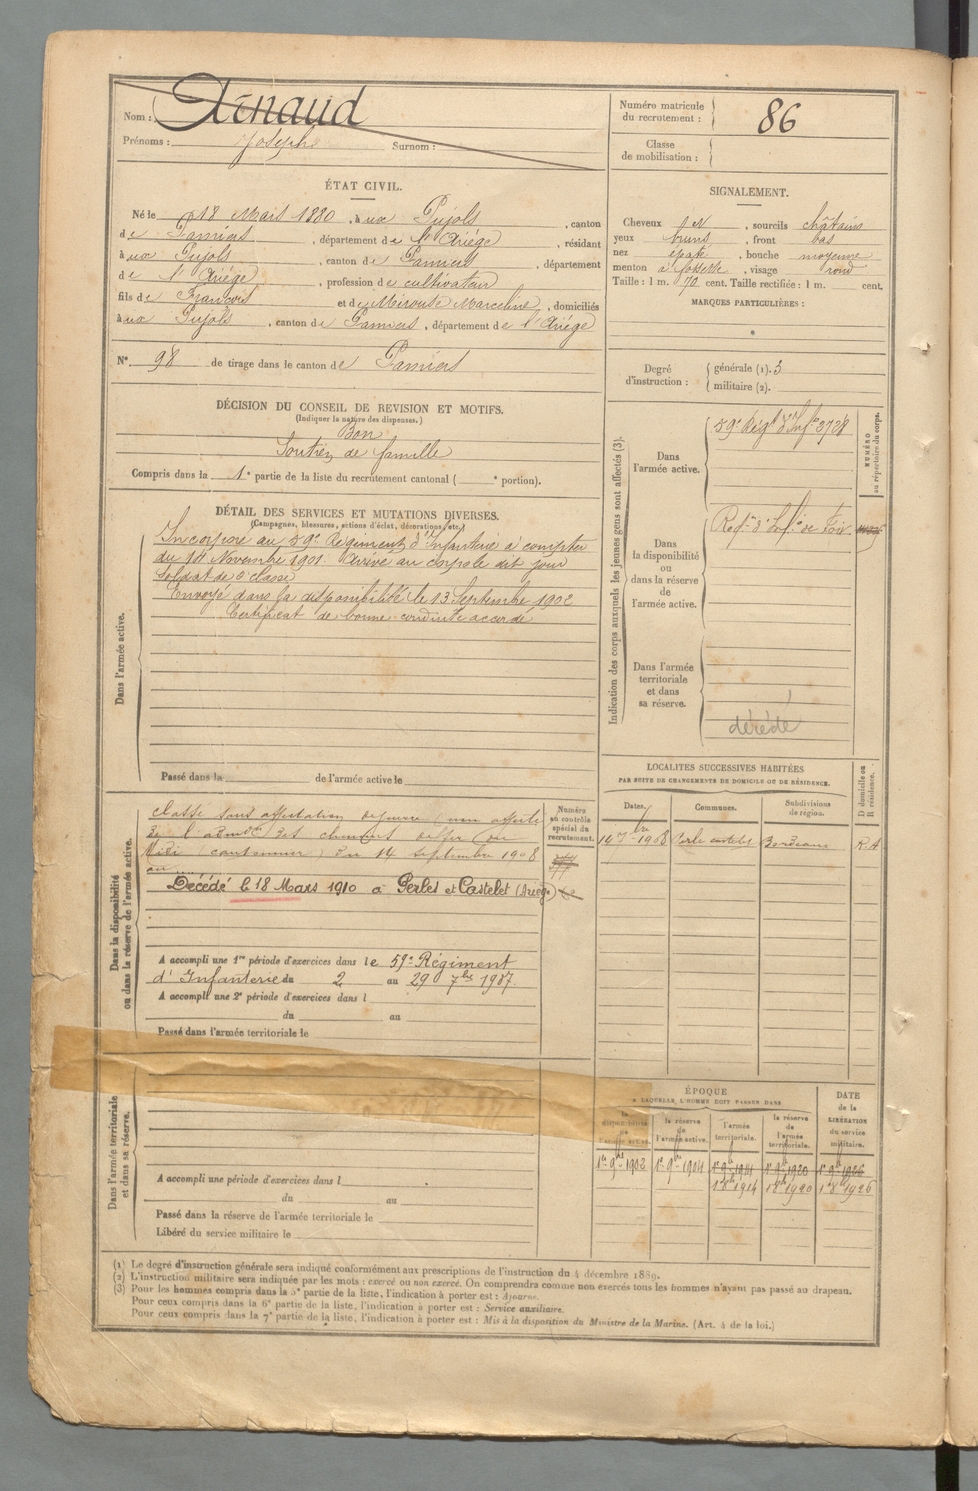 Nom : Arnaud
Prénoms : Joseph Surnom :
Numéro matricule du recrutement : 86
Classe de mobilisation :
ÉTAT CIVIL.
Né le 18 Mars 1880, à ux Pujols, canton
de Pamiers, département de l'Ariège, résidant
à ux Pujols, canton de Pamiers, département
de l'Ariège, profession de cultivateur
fils de François et de Mirouse Marceline, domiciliés
à ux Pujols, canton de Pamiers, département de l'Ariège
N° 98 de tirage dans le canton de Pamiers
SIGNALEMENT.
Cheveux, sourcils châtains
yeux bruns, front bas
nez épaté, bouche moyenne
menton à fossette, visage rond
Taille : 1 m. 70 cent. Taille rectifiée : 1 m. cent.
MARQUES PARTICULIÈRES :
Degré d'instruction : générale (1). 3
militaire (2).
DÉCISION DU CONSEIL DE REVISION ET MOTIFS.
(Indiquer la nature des dispenses.)
Bon
Soutien de famille
Compris dans la 1e partie de la liste du recrutement cantonal ( e portion).
DÉTAIL DES SERVICES ET MUTATIONS DIVERSES.
(Campagnes, blessures, actions d'éclat, décorations, etc.)
Dans l'armée active.
Incorporé au 59e Régiment d'Infanterie à compter
du 14 Novembre 1901. Arrivé au corps le dit jour
Soldat de 2e classe
Envoyé dans la disponibilité le 13 Septembre 1902
Certificat de bonne conduite accordé
Passé dans la de l'armée active le
Indication des corps auxquels les jeunes gens sont affectés (3).
NUMÉRO au répertoire du corps.
Dans l'armée active.
59e Régt d'Infie 3728
Dans la disponibilité ou dans la réserve de l'armée active.
Regt d'Infie de Foix
Dans l'armée territoriale et dans sa réserve.
décédé
LOCALITÉS SUCCESSIVES HABITÉES
PAR SUITE DE CHANGEMENTS DE DOMICILE OU DE RÉSIDENCE.
Dates. Communes. Subdivisions de région. D domicile ou R résidence.
14 7bre 1908 Perles castelet Bordeaux R.A
Dans la disponibilité ou dans la réserve de l'armée active.
Numéro au contrôle spécial du recrutement.
Classé sans affectation définie (non affecté
de l'armée) des chemins de fer du
Midi (cantonnier) du 14 septembre 1908
Décédé le 18 Mars 1910 à Perles et Castelet (Ariège)
A accompli une 1re période d'exercices dans le 59e Régiment
d'Infanterie du 2 au 29 7bre 1907
A accompli une 2e période d'exercices dans l
du au
Passé dans l'armée territoriale le
Dans l'armée territoriale et dans sa réserve.
A accompli une période d'exercices dans l
du au
Passé dans la réserve de l'armée territoriale le
Libéré du service militaire le
ÉPOQUE
A LAQUELLE L'HOMME DOIT PASSER DANS
la disponibilité de l'armée active.
la réserve de l'armée active.
l'armée territoriale.
la réserve de l'armée territoriale.
DATE de la LIBÉRATION du service militaire.
1er 9bre 1902 1er 9bre 1904 1er 9bre 1914 1er 9bre 1920 1er 9bre 1926
1er 8bre 1914 1er 8bre 1920 1er 8bre 1926
(1) Le degré d'instruction générale sera indiqué conformément aux prescriptions de l'instruction du 4 décembre 1889.
(2) L'instruction militaire sera indiquée par les mots : exercé ou non exercé. On comprendra comme non exercés tous les hommes n'ayant pas passé au drapeau.
(3) Pour les hommes compris dans la 5e partie de la liste, l'indication à porter est : Ajourné.
Pour ceux compris dans la 6e partie de la liste, l'indication à porter est : Service auxiliaire.
Pour ceux compris dans la 7e partie de la liste, l'indication à porter est : Mis à la disposition du Ministre de la Marine. (Art. 4 de la loi.)